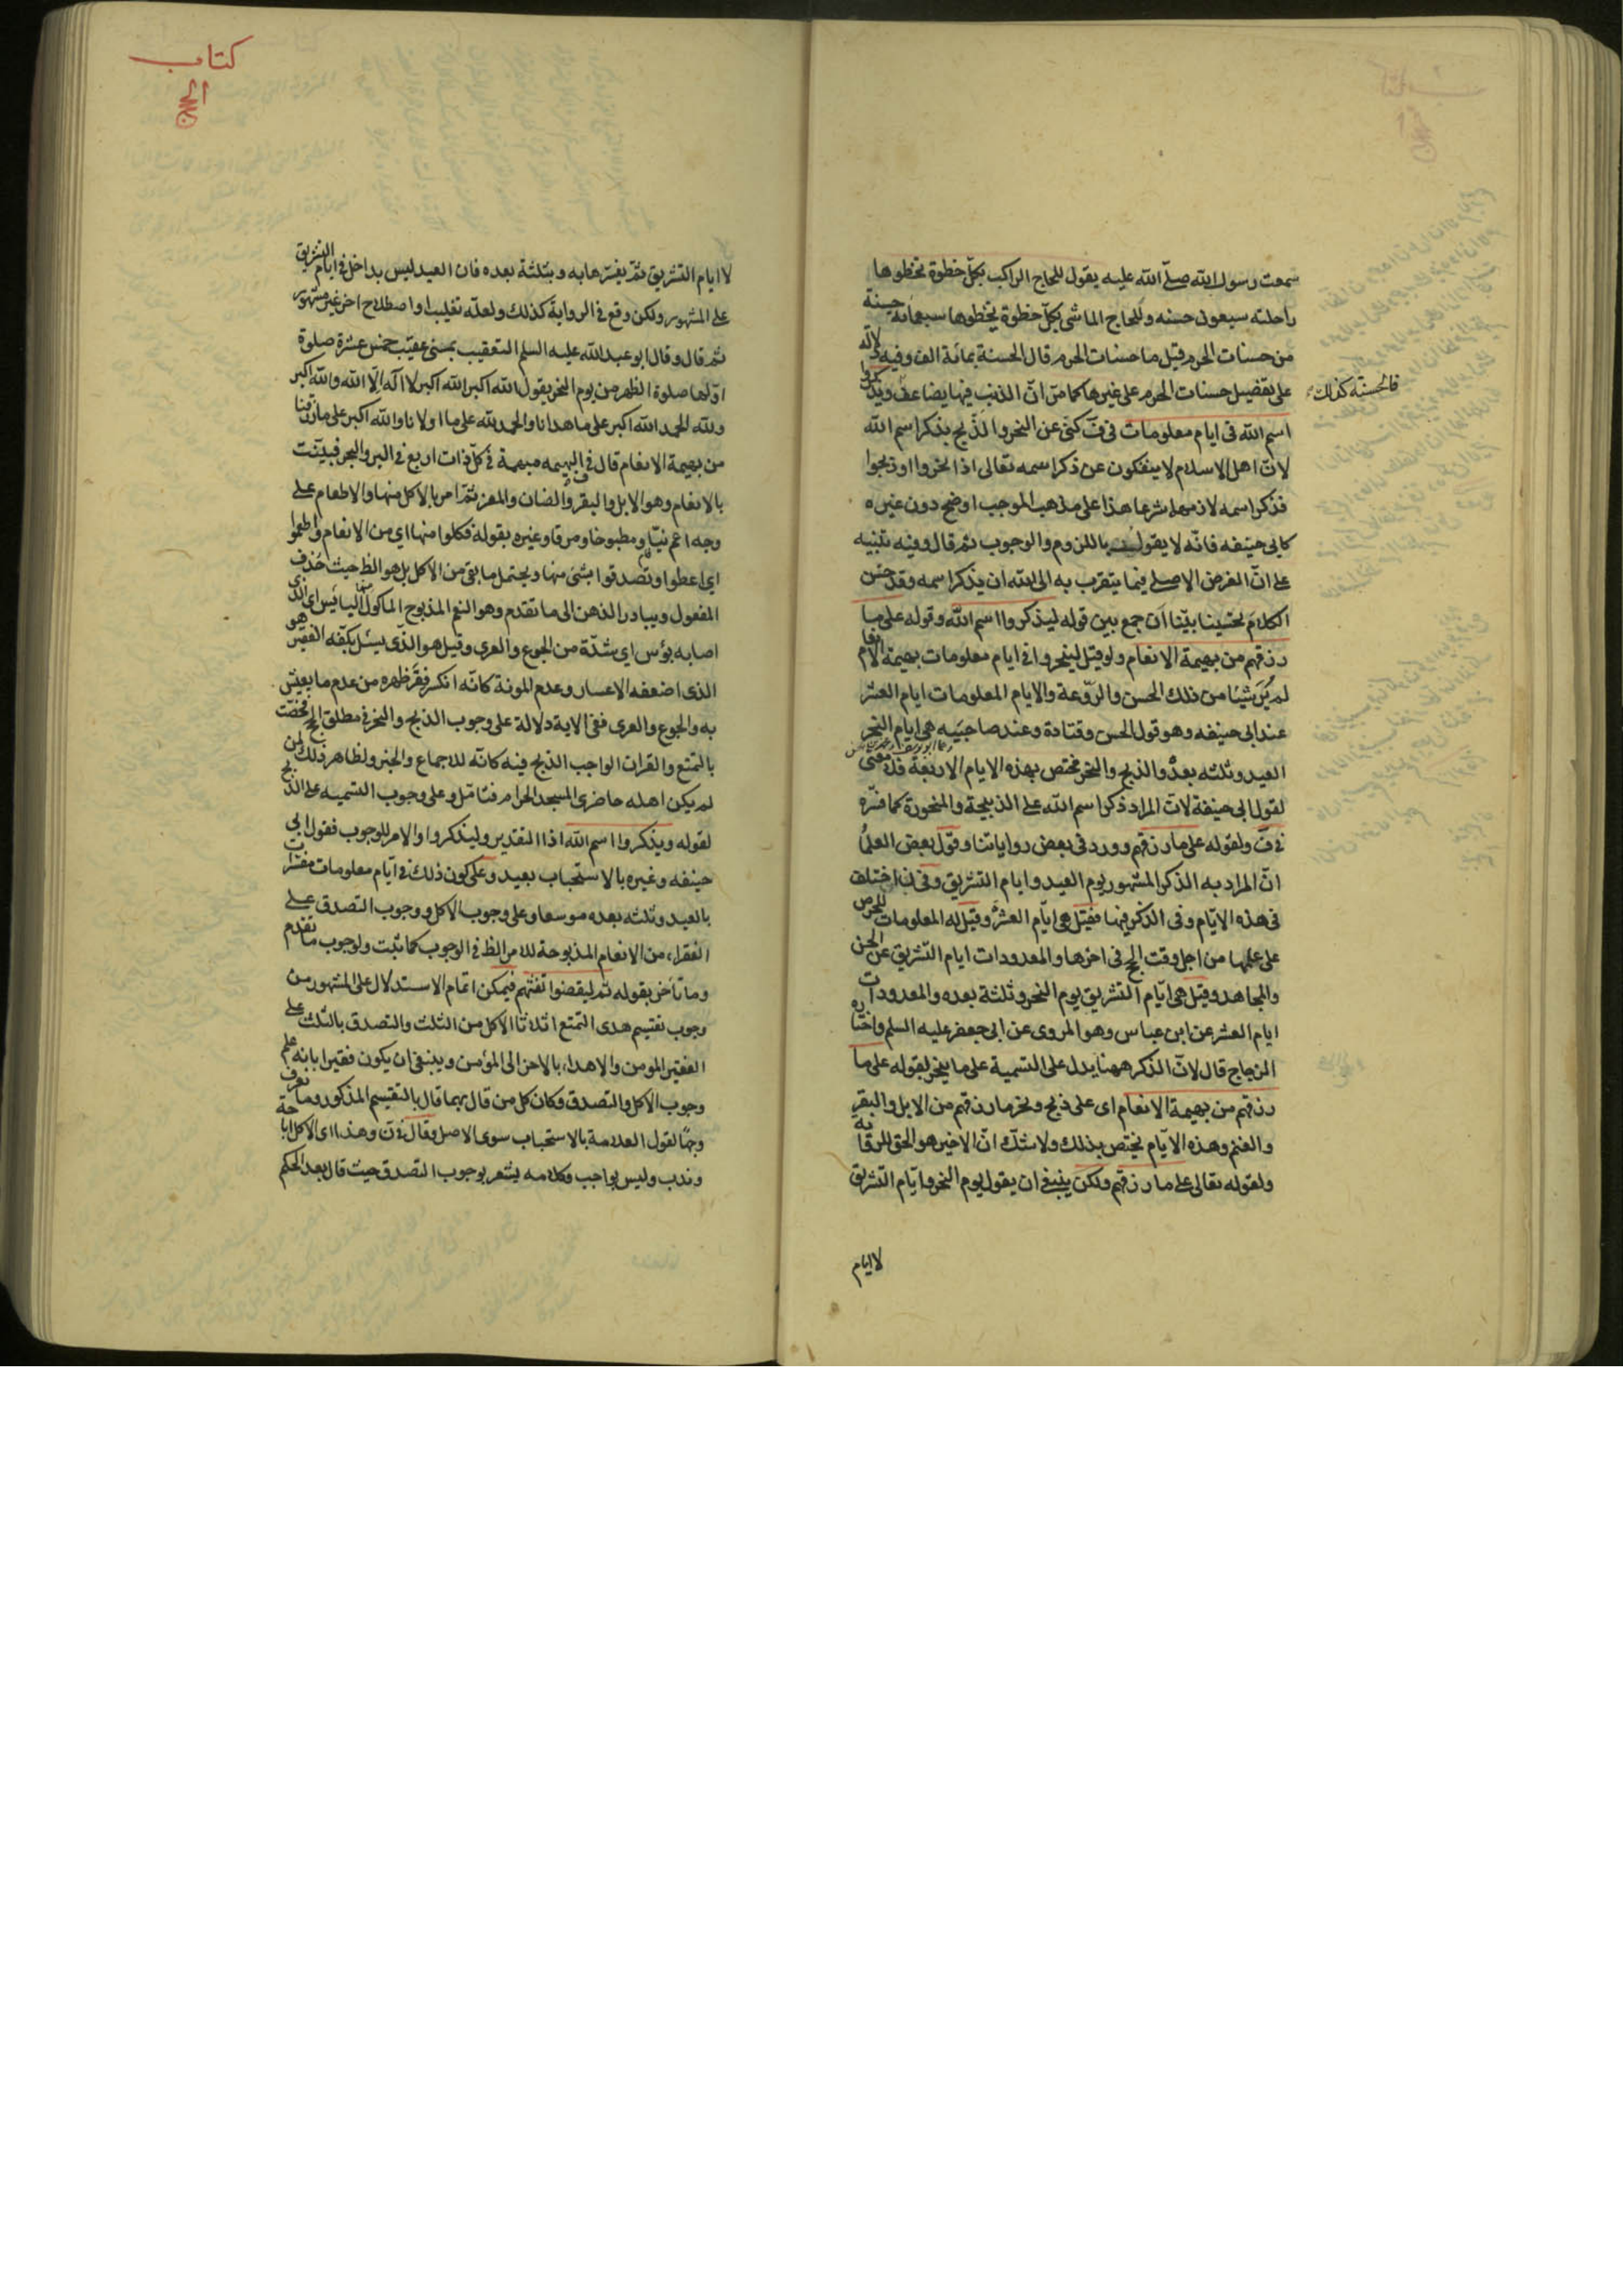 سمعت رسول الله صلّى الله عليه يقول للحاج الراكب بكلّ خطوة تخطوها
راحلته سبعون حسنه وللحاج الماشى بكلّ خطوة يخطوها سبعمائة حسنة
من حسنات الحرم قيل ما حسنات الحرم قال الحسنة بمائة الف وفيه دلالة
على تفضيل حسنات الحرم على غيرها كما مرّ انّ الذنب فيها يضاعف ويذكروا
فالحسنة كذلك
اسم الله فى ايام معلومات فى ف كنّى عن النحر والذّبح بذكر اسم الله
لانّ اهل الاسلام لا ينفكون عن ذكر اسمه تعالى اذا نحروا او ذبحوا
فذكر اسمه لازمهما شرعا هذا على مذهب الموجب اوضح دون غيره
كابى حنيفه فانّه لا يقول باللزوم والوجوب ثم قال وفيه تنبيه
على انّ الغرض الاصلى فيما يتقرب به الى الله ان يذكر اسمه وقد حسّن
الكلام تحسينا بيّنا ان جمع بين قوله ليذكروا اسم الله وقوله على ما
رزقهم من بهيمة الانعام ولو قيل لينحروا فى ايام معلومات بهيمة الانعام
لم يُرَ شيئا من ذلك الحسن والرّوعة والايام المعلومات ايام العشر
عند ابى حنيفه وهو قول الحسن وقتادة وعند صاحبيه هى ايام النحر
العيد وثلثه بعده والذبح والنحر مختص بهذه الايام الاربعة فلا معنى
لقول ابى حنيفة لانّ المراد ذكر اسم الله على الذبيحة والمنحورة كما فسّره
فى ف ولقوله على ما رزقهم وورد فى بعض رواياتنا وقول بعض العلماء
انّ المراد به الذكر المشهور يوم العيد وايام التشريق وفى ن اختلف
فى هذه الايّام وفى الذكر فيها فقيل هى ايّام العشر وقيل له المعلومات للحرص
على علمها من اجل وقت الحج فى اخرها والمعدودات ايام التّشريق عن الحسن
والمجاهد وقيل هى ايّام التشريق يوم النحر وثلثة بعده والمعدودات
ايام العشر عن ابن عباس وهو المروى عن ابى جعفر عليه السلم واختاره
الزجاج قال لانّ الذكر ههنا يدل على التسمية على ما ينحر لقوله على ما
رزقهم من بهيمة الانعام اى على ذبح ونحر ما رزقهم من الابل والبقر
والغنم وهذه الايّام تختص بذلك ولا شكّ انّ الاخير هو الحق للرواية
ولقوله تعالى على ما رزقهم ولكن ينبغى ان يقول يوم النحر وايّام التشريق
لا ايام
كتاب
الحج
لا ايام التشريق ثمّ يفسّرها به وبثلثة بعده فان العيد ليس بداخل فى ايام التشريق
على المشهور ولكن وقع فى الرواية كذلك ولعلّه تغليب او اصطلاح اخر غير مشهور
ثم قال وقال ابو عبد الله عليه السلم التعقيب بمنى عقيب خمس عشرة صلوة
اوّلها صلوة الظهر من يوم النحر يقول الله اكبر الله اكبر لا اله الّا الله والله اكبر
ولله الحمد الله اكبر على ما هدانا والحمد لله على ما اولانا والله اكبر على ما رزقنا
من بهيمة الانعام قال فى ف البهيمه مبهمة فى كلّ ذات اربع فى البر والبحر فبيّنت
بالانعام وهو الابل والبقر والضان والمعز ثمّ امر بالاكل منها والاطعام على
وجه اعم نيّا ومطبوخا ومرقا وغيره بقوله فكلوا منها اى من الانعام واطعموا
اى اعطوا وتصدقوا بشئ منها ويحتمل ما بقى من الاكل بل هو الظ حيث حُذف
المفعول ويبادر الذهن الى ما تقدم وهو النعم المذبوح الماكول منها البائس اى الذى
اصابه بؤس اى شدّة من الجوع والعرى وقيل هو الذى يسئل بكفّه الفقير هو
الذى اضعفه الاعسار وعدم المونة كانّه انكسر فقر ظهره من عدم ما يعيش
به والجوع والعرى ففى الاية دلالة على وجوب الذبح والنحر فى مطلق الحج فخصّت
بالتمتع والقران الواجب الذبح فيه كانّه للاجماع والخبر ولظاهر ذلك لمن
لم يكن اهله حاضرى المسجد الحرام فتامّل وعلى وجوب التسميه على الذبح
لقوله ويذكروا اسم الله اذا التقدير وليذكروا والامر للوجوب فقول ابى
حنيفه وغيره بالاستحباب بعيد وعلى كون ذلك فى ايّام معلومات مفسّرات
بالعيد وثلثه بعده موسعا وعلى وجوب الاكل ووجوب التصدق على
الفقراء من الانعام المذبوحة للامر الظ فى الوجوب كما ثبت ولوجوب ما تقدم
وما تاخر بقوله ثم ليقضوا تفثهم فيمكن اتمام الاستدلال على المشهور من
وجوب تقسيم هدى التمتع اثلاثا الاكل من الثلث والتصدق بالثلث على
الفقير المومن والاهداء بالاخر الى المؤمن وينبغى ان يكون فقيرا بانه علم
وجوب الاكل والتصدق فكان كل من قال بهما قال بالتقسيم المذكور وما نعرف
وجها لقول العلامة بالاستحباب سوى الاصل وقال فى ن وهذا اى الاكل اباحة
وندب وليس بواجب وكلامه يشعر بوجوب التصدق حيث قال بعد الحكم